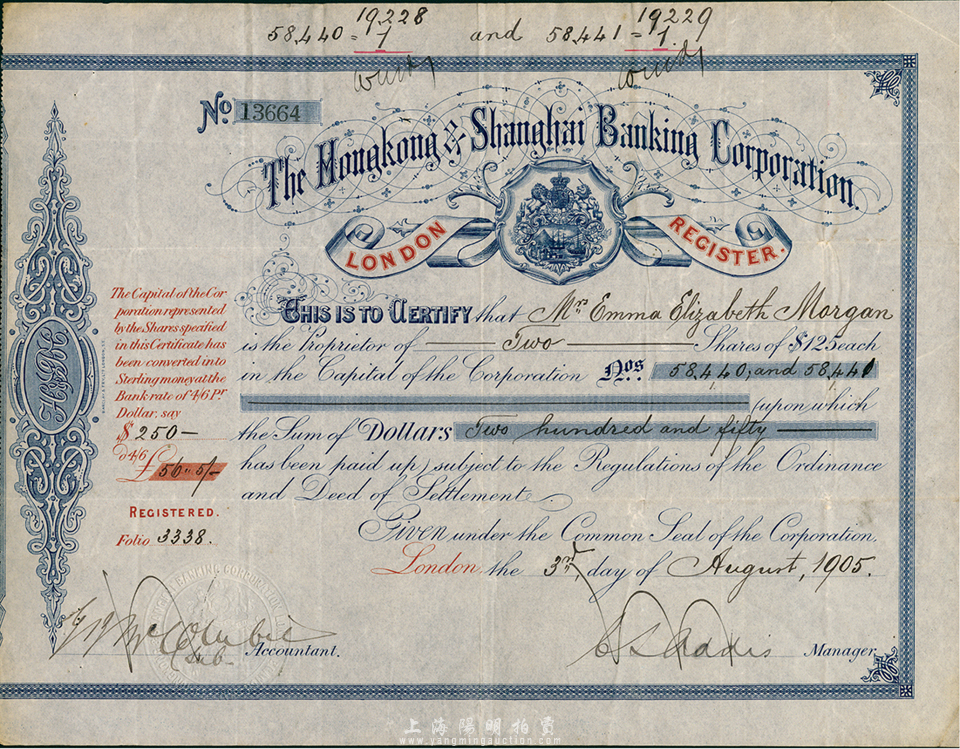 19228 19229
58,440 = 1 and 58,441 = 1
No. 13664
The Hongkong & Shanghai Banking Corporation.
LONDON REGISTER.
The Capital of the Cor
poration represented
by the Shares specified
in this Certificate has
been converted into
Sterling money at the
Bank rate of 4/6 Pr
Dollar, say
$ 250—
@ 4/6
£ 56.. 5/-
REGISTERED.
Folio 3338.
THIS IS TO CERTIFY that Mrs Emma Elizabeth Morgan
is the Proprietor of Two Shares of $125 each
in the Capital of the Corporation Nos. 58,440, and 58,441
(upon which
the Sum of Dollars Two hundred and fifty
has been paid up) subject to the Regulations of the Ordinance
and Deed of Settlement.
Given under the Common Seal of the Corporation.
London the 3rd, day of August, 1905.
Accountant.
C S Addis Manager.
上海陽明拍賣
www.yangmingauction.com